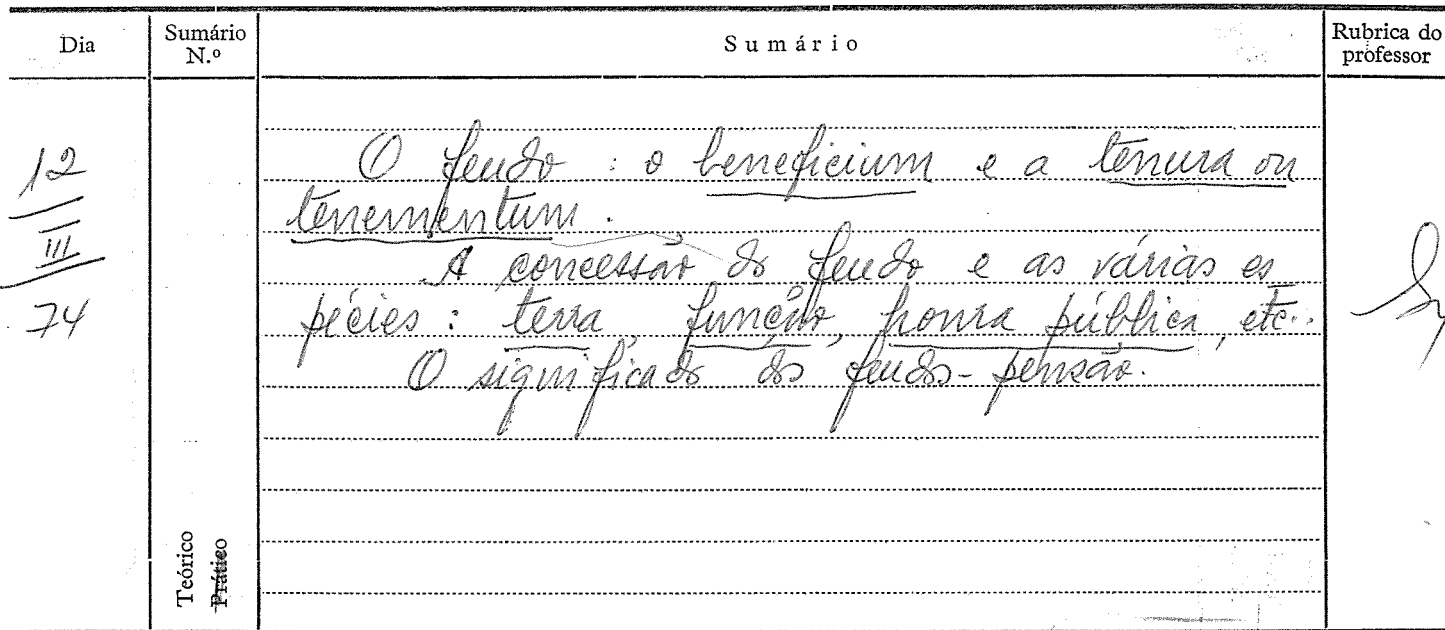 Dia
Sumário N.º
Sumário
Rubrica do professor
12
III
74
O feudo : o beneficium e a tenura ou
tenementum.
A concessão do feudo e as várias es
pécies : terra, função, honra pública, etc..
O significado do feudo-pensão.
Teórico
Prático